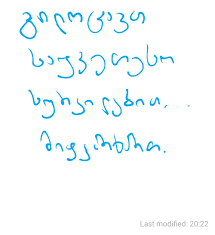 გილოცავთ
საუკეთესო
სურვილებით...
მიყვარხართ.
Last modified: 20:22